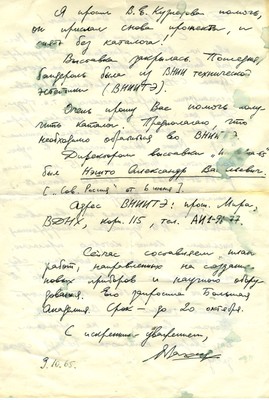 Я просил В.Е. Кузнецова помочь,
он прислал снова проспекты, и
опять без каталога!
Выставка закрылась. Последняя
бандероль была из ВНИИ технической
эстетики (ВНИИТЭ).
Очень прошу Вас помочь полу-
чить каталог. Предполагаю, что
необходимо обратиться во ВНИИТЭ
Директором выставки
был Александр Васильевич
["Сов. Россия" от 6 июня].
Адрес ВНИИТЭ: просп. Мира,
ВДНХ, корп. 115, тел. АИ 1-91-77
Сейчас составляем план
работ, направленных на создание
новых приборов и научного обору-
дования. Его запросила Большая
Академия. Срок — до 20 октября.
С искренним уважением,
9.10.65.